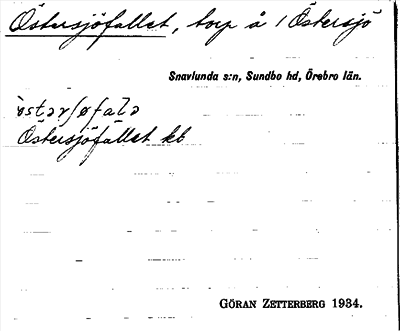 Östersjöfallet, torp å 1 Östersjö
Snavlunda s:n, Sundbo hd, Örebro län.
Östersjöfallet kb
GÖRAN ZETTERBERG 1934.